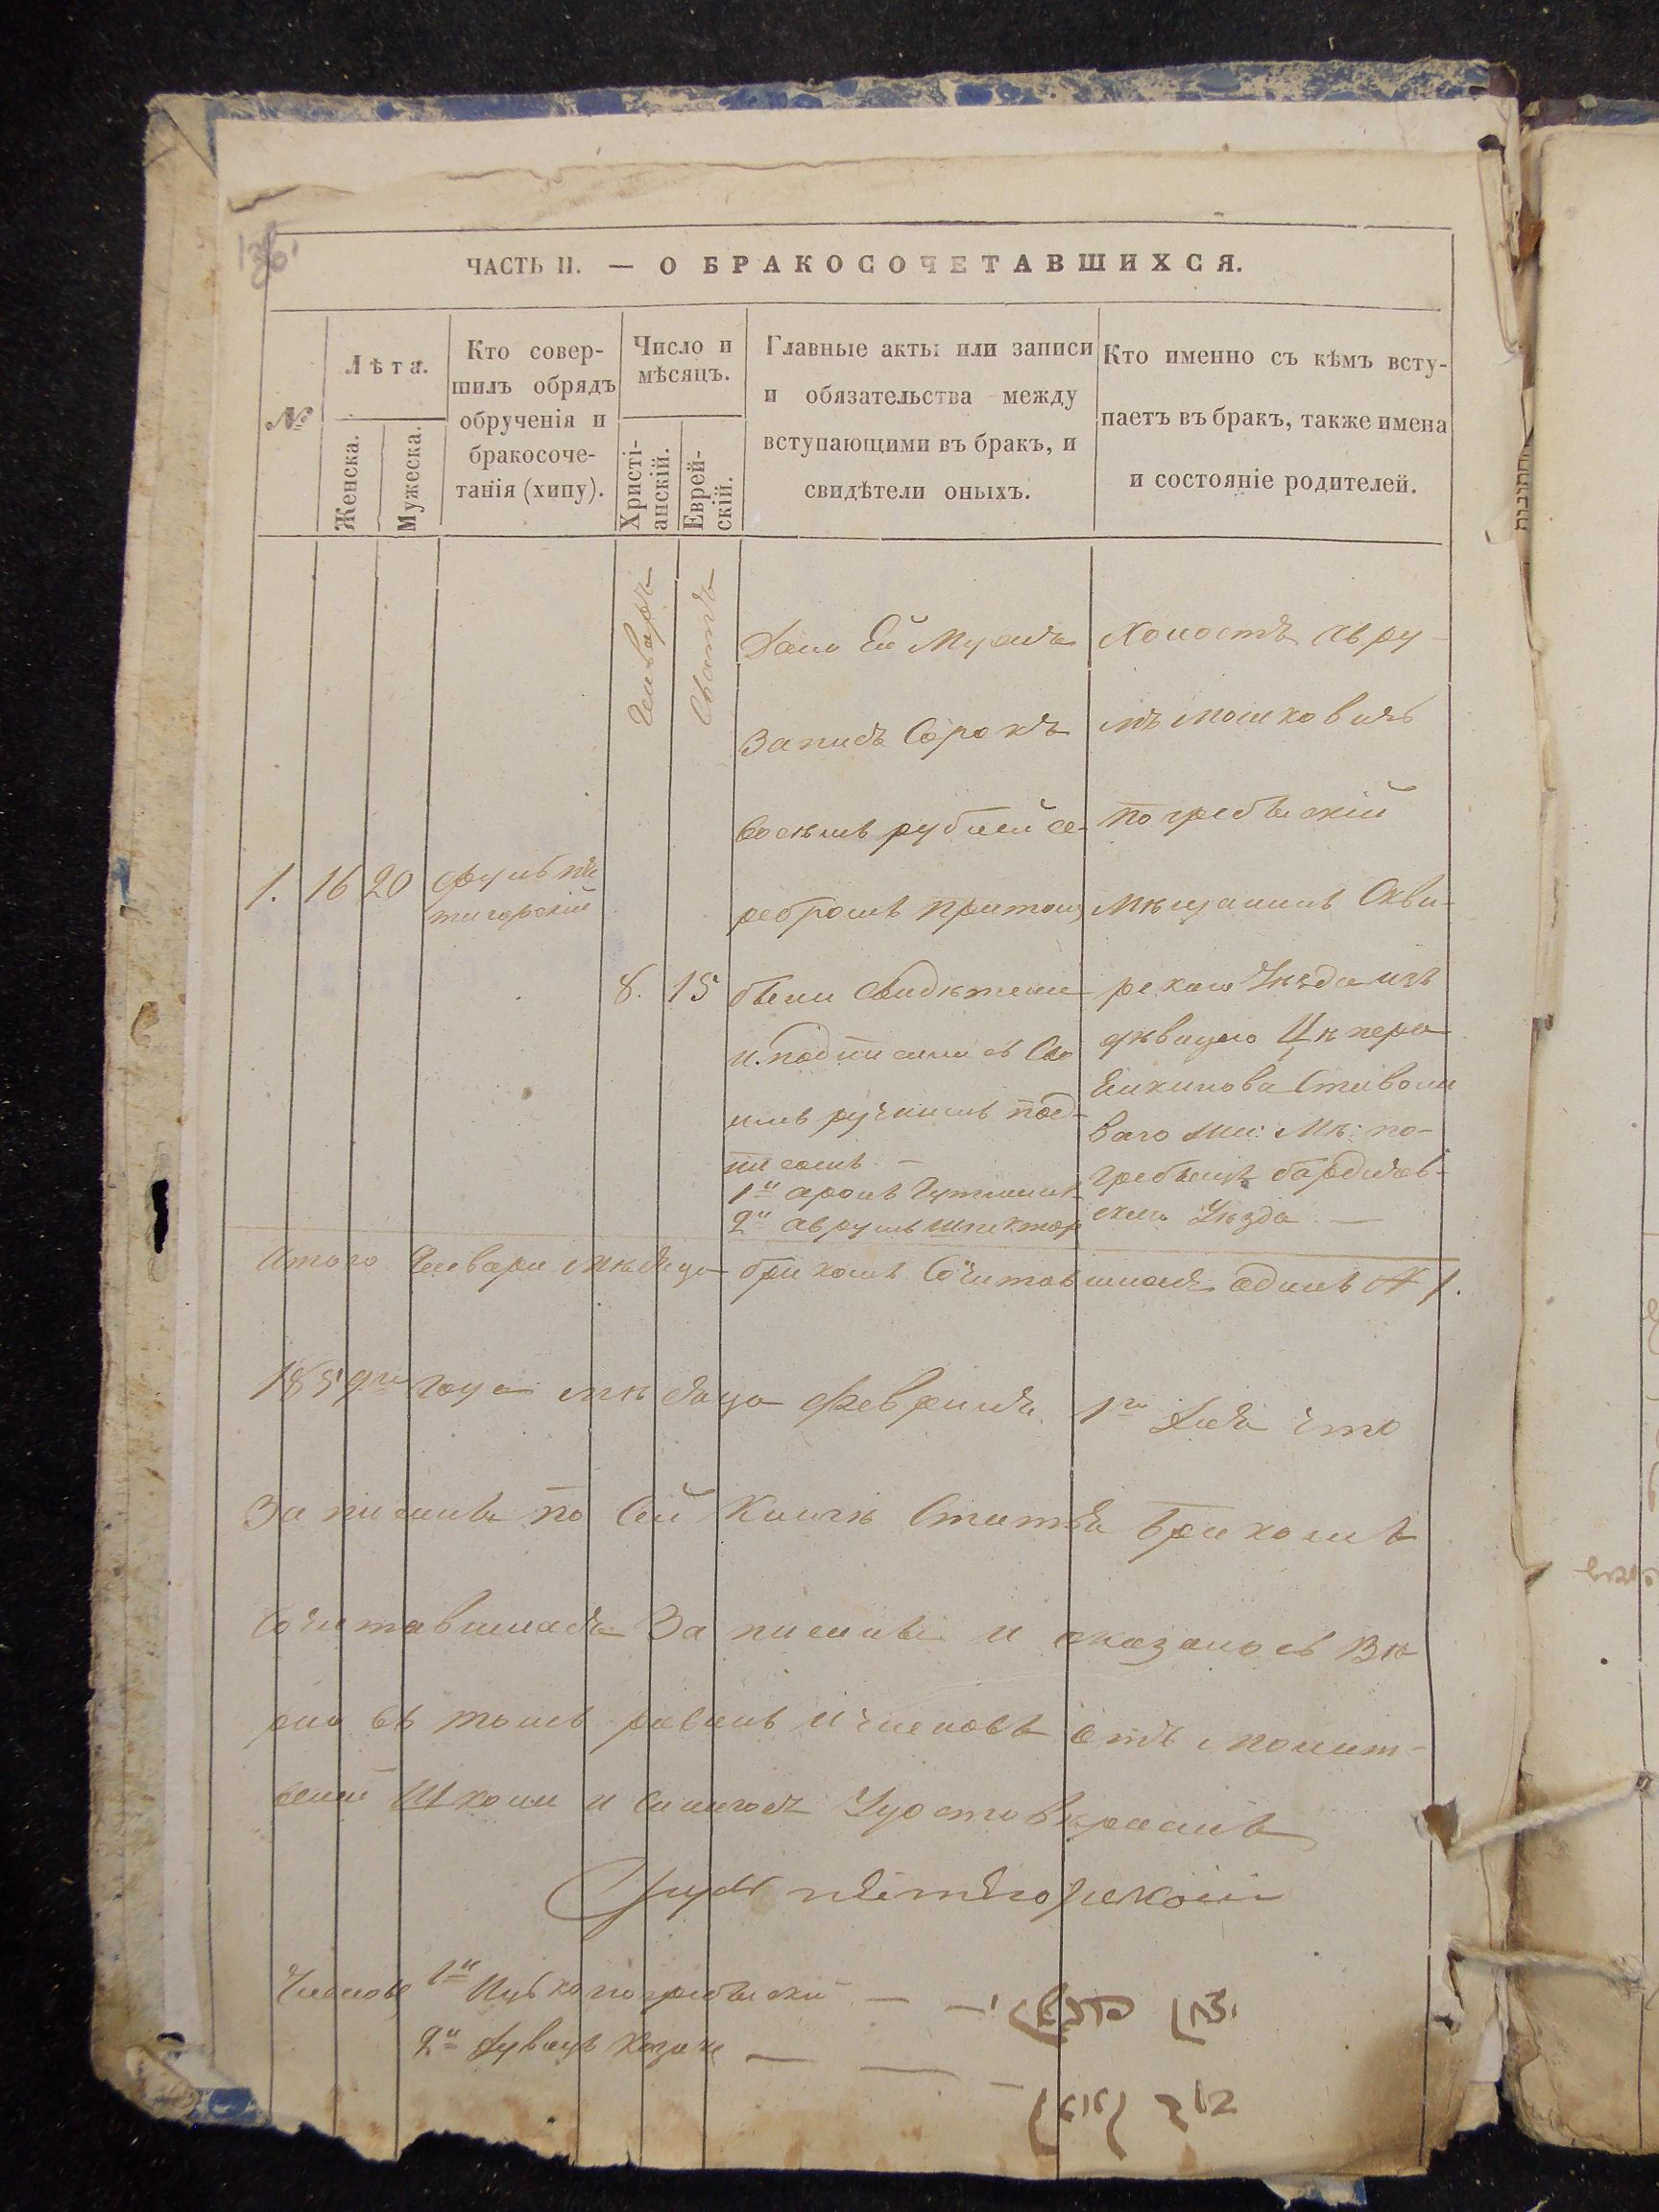 ЧАСТЬ II. — О БРАКОСОЧЕТАВШИХСЯ.
№
Лѣта.
Женска.
Мужеска.
Кто совер-
шилъ обрядъ
обрученія и
бракосоче-
танія (хипу).
Число и
мѣсяцъ.
Христі-
анскій.
Еврей-
скій.
Главные акты или записи
и обязательства между
вступающими въ бракъ, и
свидѣтели оныхъ.
Кто именно съ кѣмъ всту-
паетъ въ бракъ, также имена
и состояніе родителей.
Генваръ
Сватъ
1.
16
20
тигорскій
8.
15
Дано Ей Мужъ
Запись Сорокъ
восѣмь рублей се-
ребромъ притомъ
были свидѣтели
и подписались Сво
имъ ручнымъ под-
писомъ —
1й аронъ Гутманъ
2й аврумъ шпекторъ
Холостъ Авру-
мъ мошковичъ
погребыскій
мѣщанинъ Скви-
рскаго Уѣзда изъ
дѣвицею
погребыщъ бардичев-
скаго Уѣзда —
Итого Генвари мѣсяца бракомъ Сочитавшихся одинъ № 1.
1859го года мѣсяца Февраля 1го Дня что
Записаны по Сей Книгѣ Статья бракомъ
Сочитавшихся Записаны и оказалось Вѣ
рно въ томъ равинъ и Членовъ отъ молит-
веной Школи и Синагоги Удостовѣряемъ
пятигорской
Члены 1й Ицько погребыский —
2й